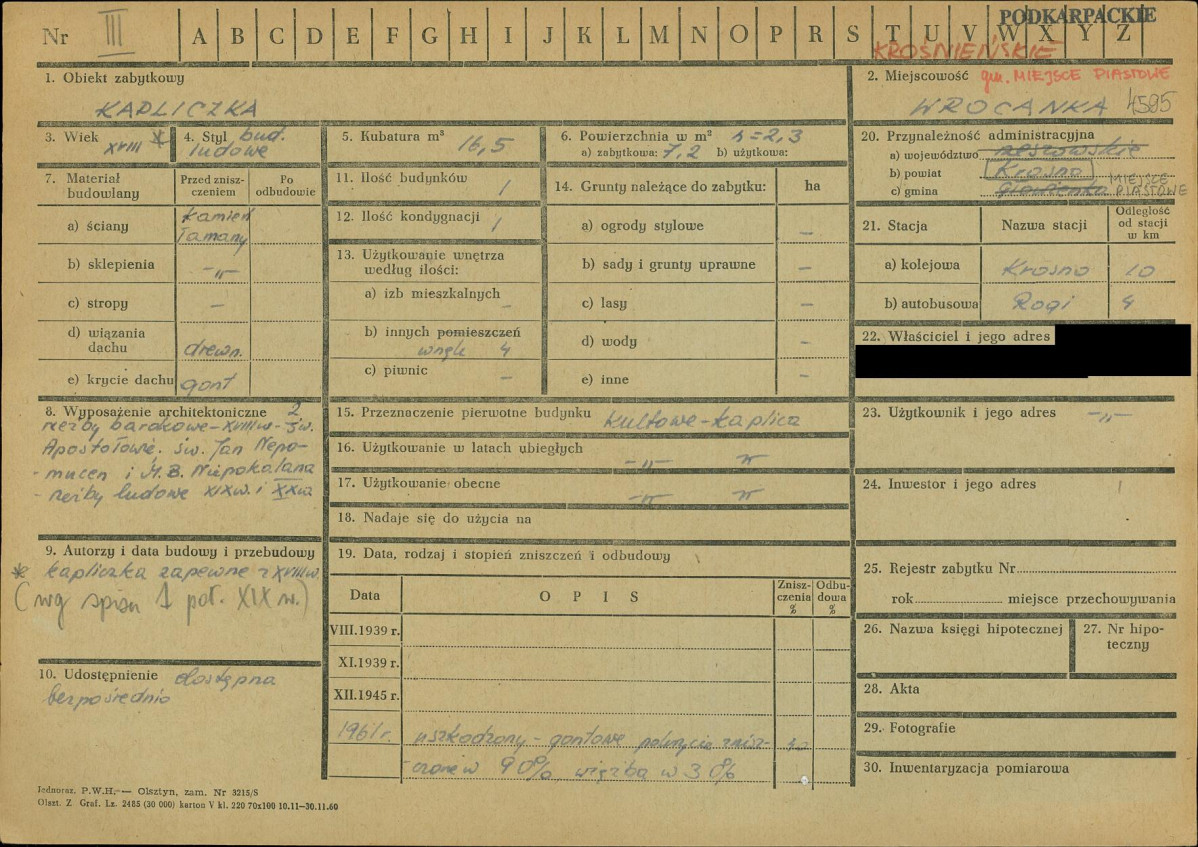 PODKARPACKIE
Nr III A B C D E F G H I J K L M N O P R S T U V W X Y Z
KROŚNIEŃSKIE
1. Obiekt zabytkowy
KAPLICZKA
2. Miejscowość gm. MIEJSCE PIASTOWE
WROCANKA 4595
3. Wiek
XVIII *
4. Styl bud.
ludowe
5. Kubatura m³ 16,5
6. Powierzchnia w m² h=2,3
a) zabytkowa: 7,2 b) użytkowa:
7. Materiał budowlany
Przed znisz-
czeniem
Po
odbudowie
a) ściany kamień
łamany
b) sklepienia -„-
c) stropy –
d) wiązania
dachu drewn.
e) krycie dachu gont
8. Wyposażenie architektoniczne 2
rzeźby barokowe-XVIIIw-św.
Apostołowie. św. Jan Nepo-
-mucen i M.B. Niepokalana
- rzeźby ludowe XIXw. i XXw
9. Autorzy i data budowy i przebudowy
* kapliczka zapewne z XVIIIw.
(wg spisu 1 poł. XIX w.)
10. Udostępnienie dostępna
bezpośrednio
11. Ilość budynków 1
12. Ilość kondygnacji 1
13. Użytkowanie wnętrza
według ilości:
a) izb mieszkalnych –
b) innych pomieszczeń
wnęk 4
c) piwnic –
14. Grunty należące do zabytku: ha
a) ogrody stylowe –
b) sady i grunty uprawne –
c) lasy –
d) wody –
e) inne –
15. Przeznaczenie pierwotne budynku kultowe-kaplica
16. Użytkowanie w latach ubiegłych -„- „
17. Użytkowanie obecne -„- „
18. Nadaje się do użycia na
19. Data, rodzaj i stopień zniszczeń i odbudowy
Data OPIS Znisz-
czenia
% Odbu-
dowa
%
VIII.1939 r.
XI.1939 r.
XII.1945 r.
1961r. uszkodzony - gontowe pokrycie znisz-
-czone w 90% więźba w 30%
20. Przynależność administracyjna
a) województwo rzeszowskie
b) powiat Krosno
c) gmina MIEJSCE
PIASTOWE
21. Stacja Nazwa stacji Odległość
od stacji
w km
a) kolejowa Krosno 10
b) autobusowa Rogi 4
22. Właściciel i jego adres
23. Użytkownik i jego adres -„-
24. Inwestor i jego adres
25. Rejestr zabytku Nr
rok miejsce przechowywania
26. Nazwa księgi hipotecznej
27. Nr hipo-
teczny
28. Akta
29. Fotografie
30. Inwentaryzacja pomiarowa
Jednoraz. P.W.H. — Olsztyn, zam. Nr 3215/S
Olszt. Z Graf. Lz. 2485 (30 000) karton V kl. 220 70x100 10.11—30.11.60